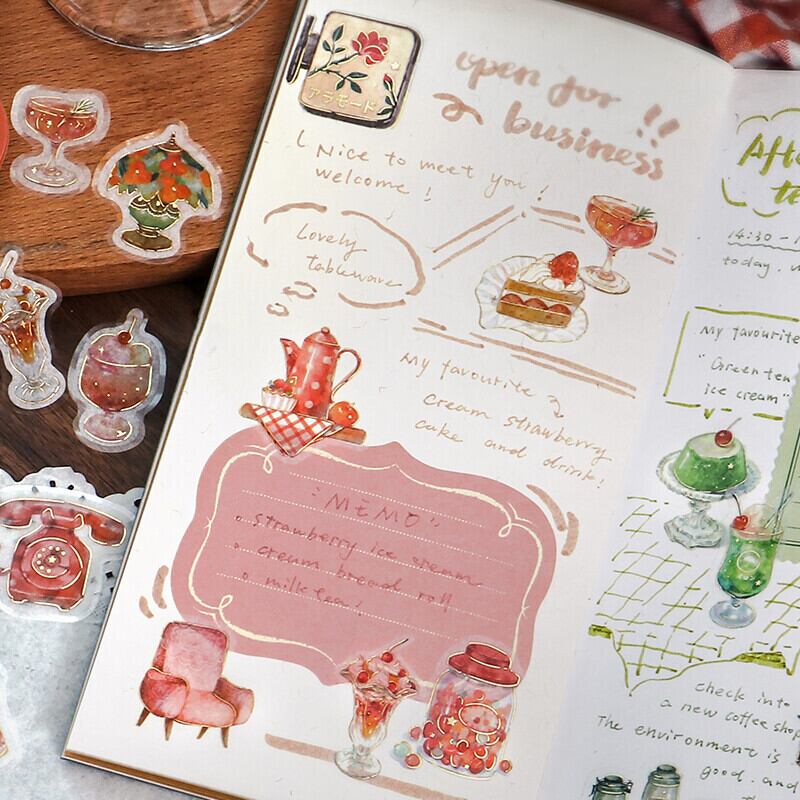 アラモード
open for
business !!
Nice to meet you !
welcome !
Lovely
tableware
My favourite
cream strawberry
cake and drink!
"MEMO"
• strawberry ice cream
• cream bread roll
• milk tea!
14:30 -
today.
My favourite
"Green tea
ice cream"
check into
a new coffee shop
The environment is
good. and